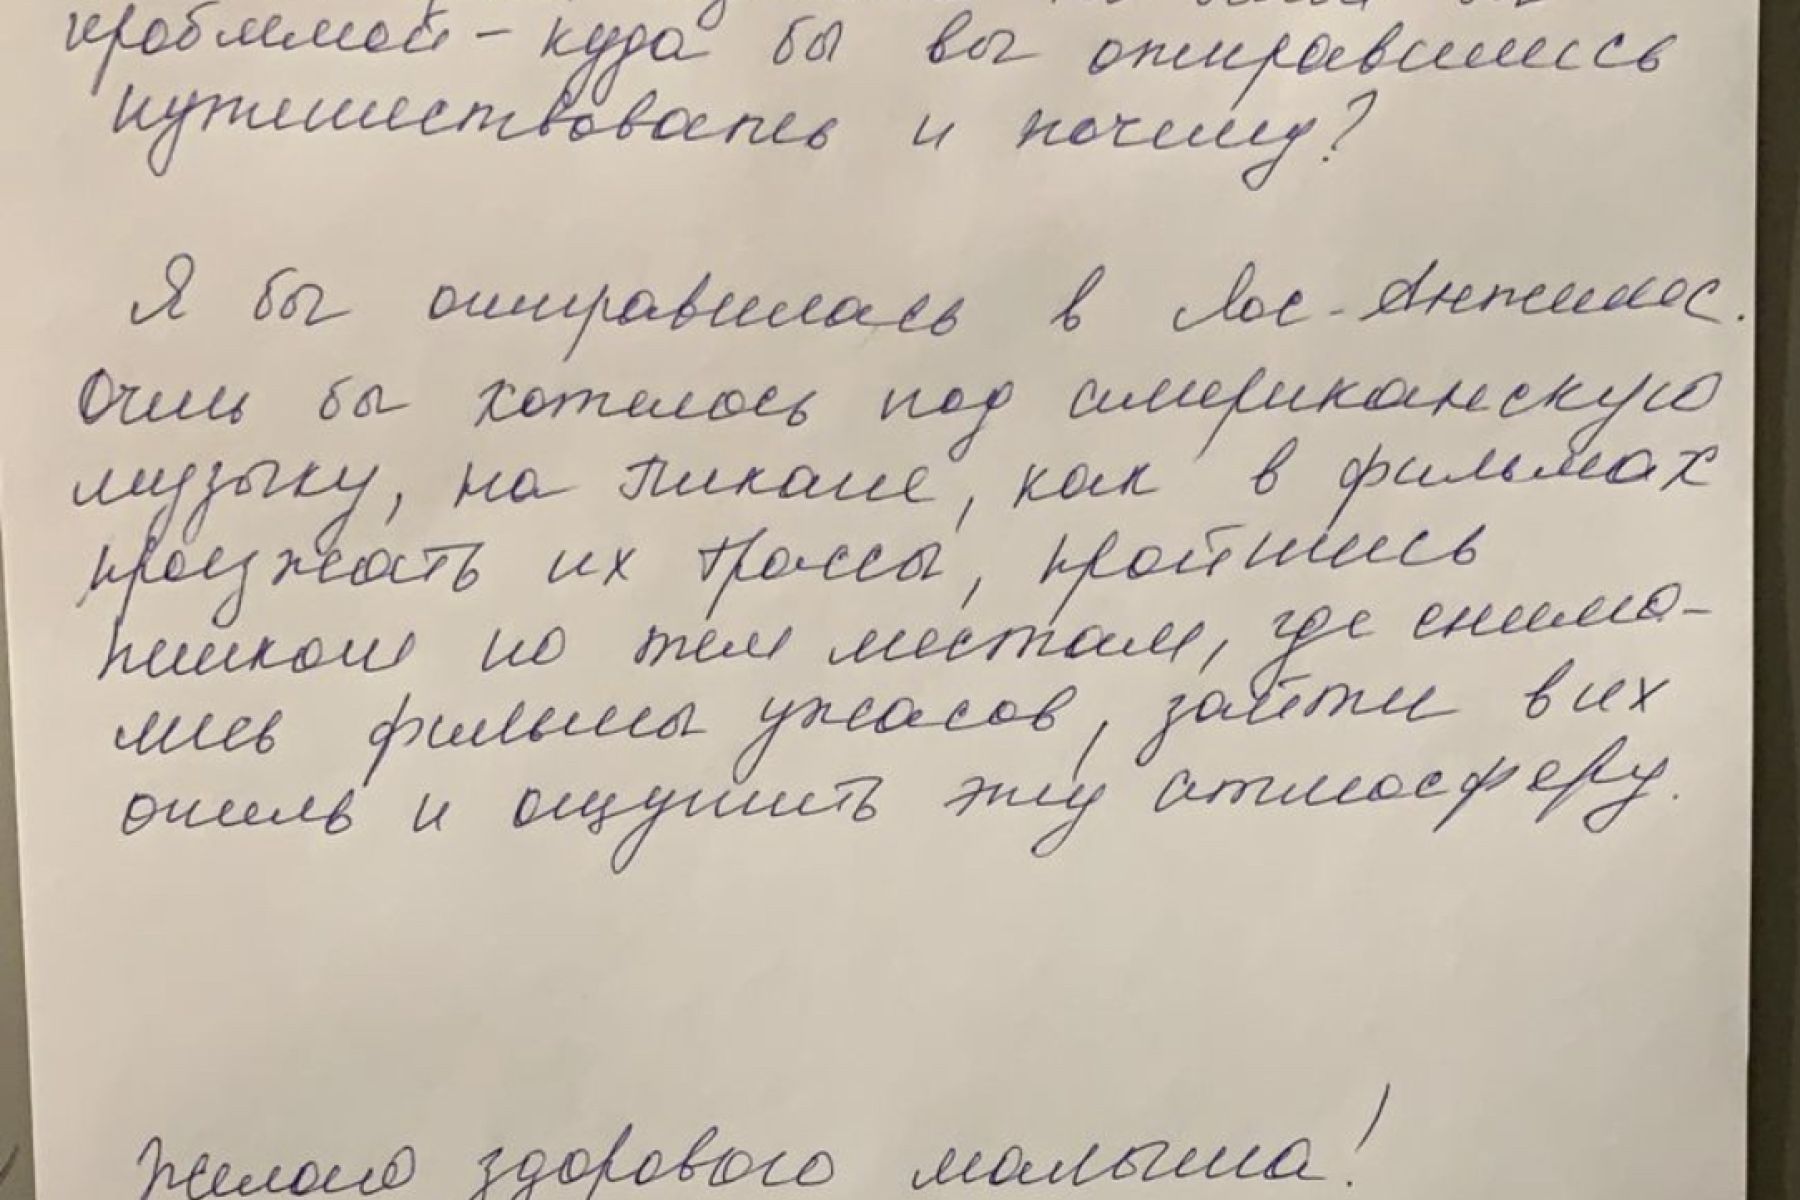 проблемой - куда бы вы отправились
путешествовать и почему?
Я бы отправилась в Лос-Анжелес.
Очень бы хотелось под американскую
музыку, на Пикапе, как в фильмах
проезжать их трассы, пройтись
пешком по тем местам, где снима-
лись фильмы ужасов, зайти в их
отель и ощутить эту атмосферу.
Желаю здорового малыша!